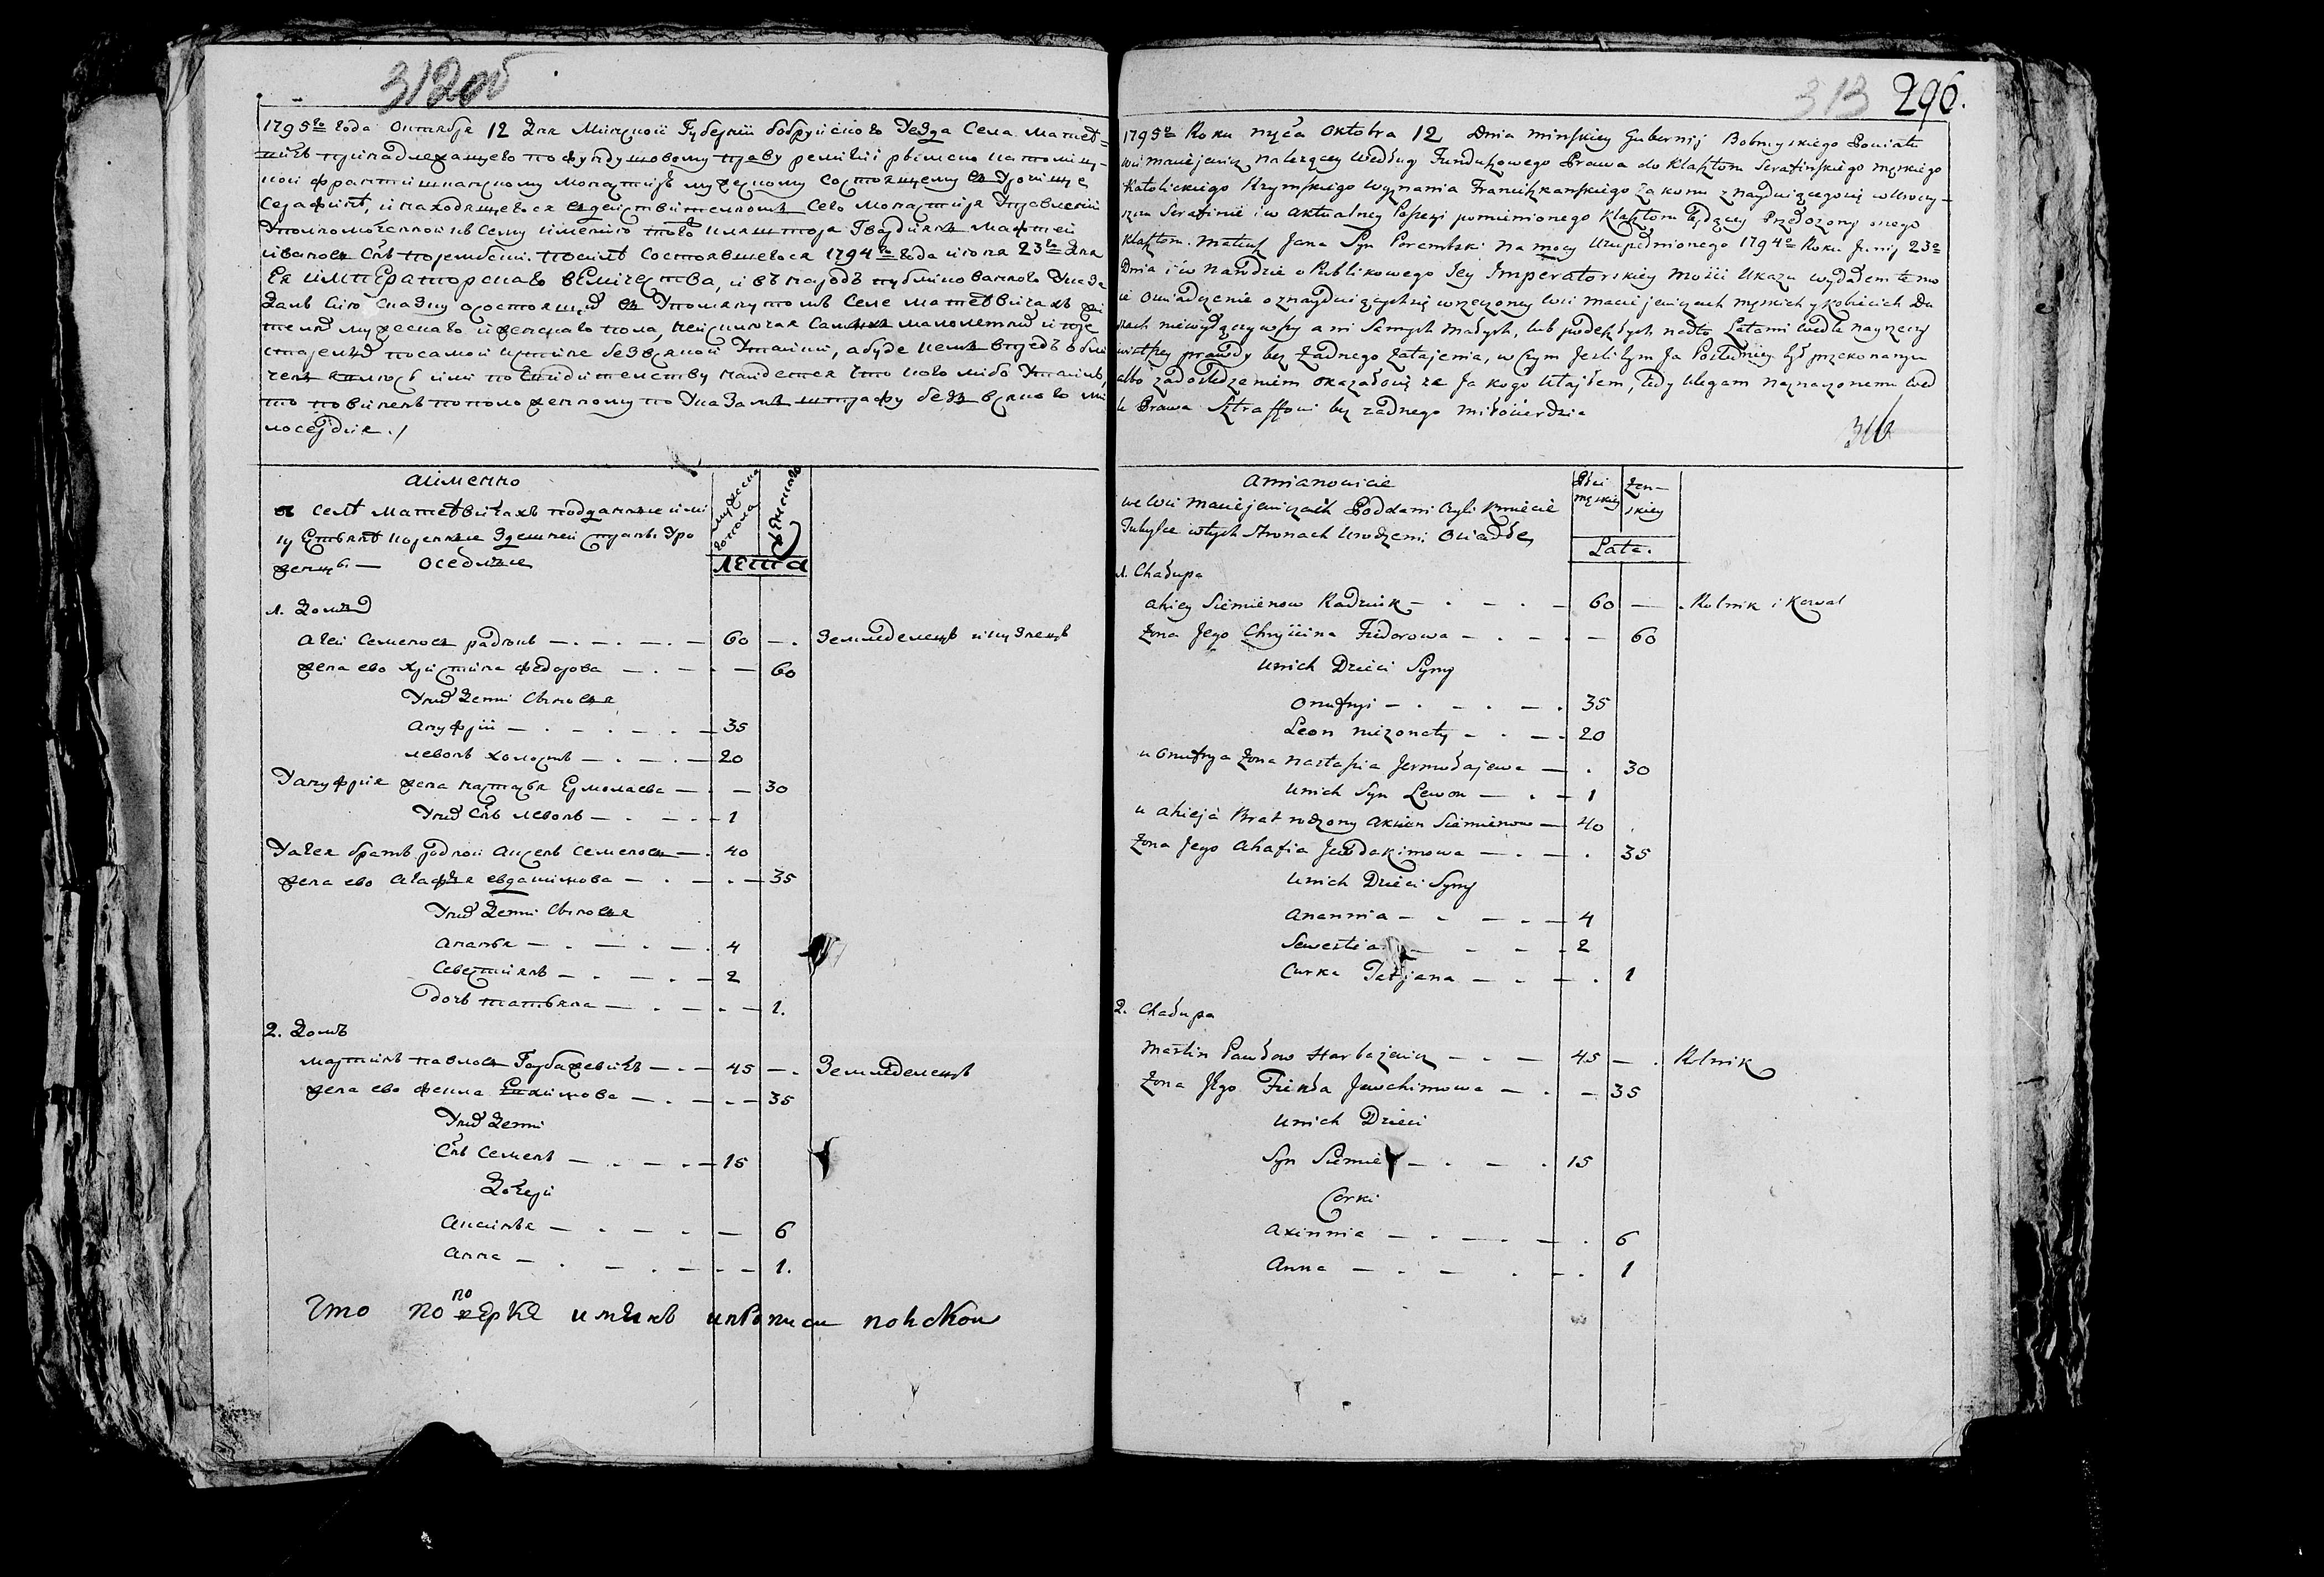 312об
1795го года Октября 12 Дня Минской Губернии бобруйского Уезда Села матее=
принадлежащего по фундушовому праву религии рымско католиц-
кой францишканскому монастирю мужескому состоящему в Урочище
Серафине, и находящегося в действительном сего монастиря Управлении
Уполномоченной к сему имению того кляштора Гвардиян Матфей
иванов Снъ порембски. После состоявшегося 1794го года июня 23го Дня
Ея императорского величества, и в народ публикованного Указа
Дал сию сказку о состоящих в Упомянутом Селе матеевичах жи
телях мужеска и женска пола, не исключая самых малолетных и пре
старелых по самой истине без всякой Утайки, а буде в чем впредь обли
чен или найдется что кого либо Утаил,
то повинен положенному по Указам штрафу без всякого ми
лосердия ./
аименно
в селе матеевичах подданные или
коренные Здешней страны Уро
женцы — оседлые
мужеска
го пола
женского
лета
1. Домъ
агей Семенов радюкъ — 60 — Земледелецъ и кузнецъ
жена ево христина федорова — 60
У них Дети Сыновья
ануфрий — 35
левонъ холостъ — 20
У ануфрия жена настасья Ермолаева — 30
У них Снъ левонъ — 1
У агея братъ родной Аксенъ Семенов — 40
жена ево агафья евдакимова — 35
У них Дети Сыновья
ананья — 4
Севестиянъ — 2
дочь татьяна — 1.
2. Домъ
мартинъ павлов Горбацевичъ — 45 — Земледелецъ
жена ево фекла — 35
У них Дети
Снъ Семенъ — 15
Дочери
аксинья — 6
анна — 1.
по
что по верке
313 296.
1795o Roku mṡca Oktobra 12 Dnia minskiey Gubernij Bobruyskiego Powiatu
wsi maciejewicz należącey według Funduszowego Prawa do Klasztoru Serafińskiego męskiego
Katolickiego Rzymskiego wyznania Franciszkańskiego Zakonu znayduiącegosię w Uroczy-
szczu Serafinie i w aktualney Possesyi pomienionego Klasztoru będącey Przełożony onego
Klasztoru. mateusz Jana Syn Porembski na mocy 1794o Roku Junij 23o
Dnia i w narodzie o Publikowanego Jey Imperatorskiey mości Ukazu wydałem temo
ie Oświadczenie o znayduiącychsię w rzeczoney wsi maciejewiczach męskich y kobiecich Du
szach niewyłączywszy ani Samych małych, lub podeszłych nadto Latami wedle nayrzeczy
wistszey prawdy bez żadnego Zatajenia, w czym Jeśliżym Ja Poslednicy był przekonanym
albo za dośledzeniem okazałosię że Ja kogo Utaiłem, tedy Ulegam naznaczonemu wed
le Prawa Sztraffowi bez żadnego miłosierdzia
316
amianowicie
we wsi maciejewiczach Poddani czyli Kmiecie
Tuteysze w tych Stronach Urodzeni Osiadłe,
Płci
męskiey
Żeń-
skiey
Lata.
1. Chałupa
ahiey Siemienow Radziuk — 60 — Rolnik i Kowal
żona Jego Chryscina Fiedorowa — 60
U nich Dzieci Syny
Onufryi — 35
Leon niżonaty — 20
u Onufrya żona nastasia Jermołajewa — 30
U nich Syn Lewon — 1
u ahieja Brat rodzony Aksien Siemienow — 40
żona Jego ahafia Jewdakimowa — 35
U nich Dzieci Syny
Anannia — 4
Sewestia — 2
Curka Tatjana — 1
2. Chałupa
Martin Pawłow Harbazewicz — 45 — Rolnik
żona Jego Fiekła Jauchimowa — 35
U nich Dzieci
Syn Siemie — 15
Corki
Axinnia — 6
Anna — 1